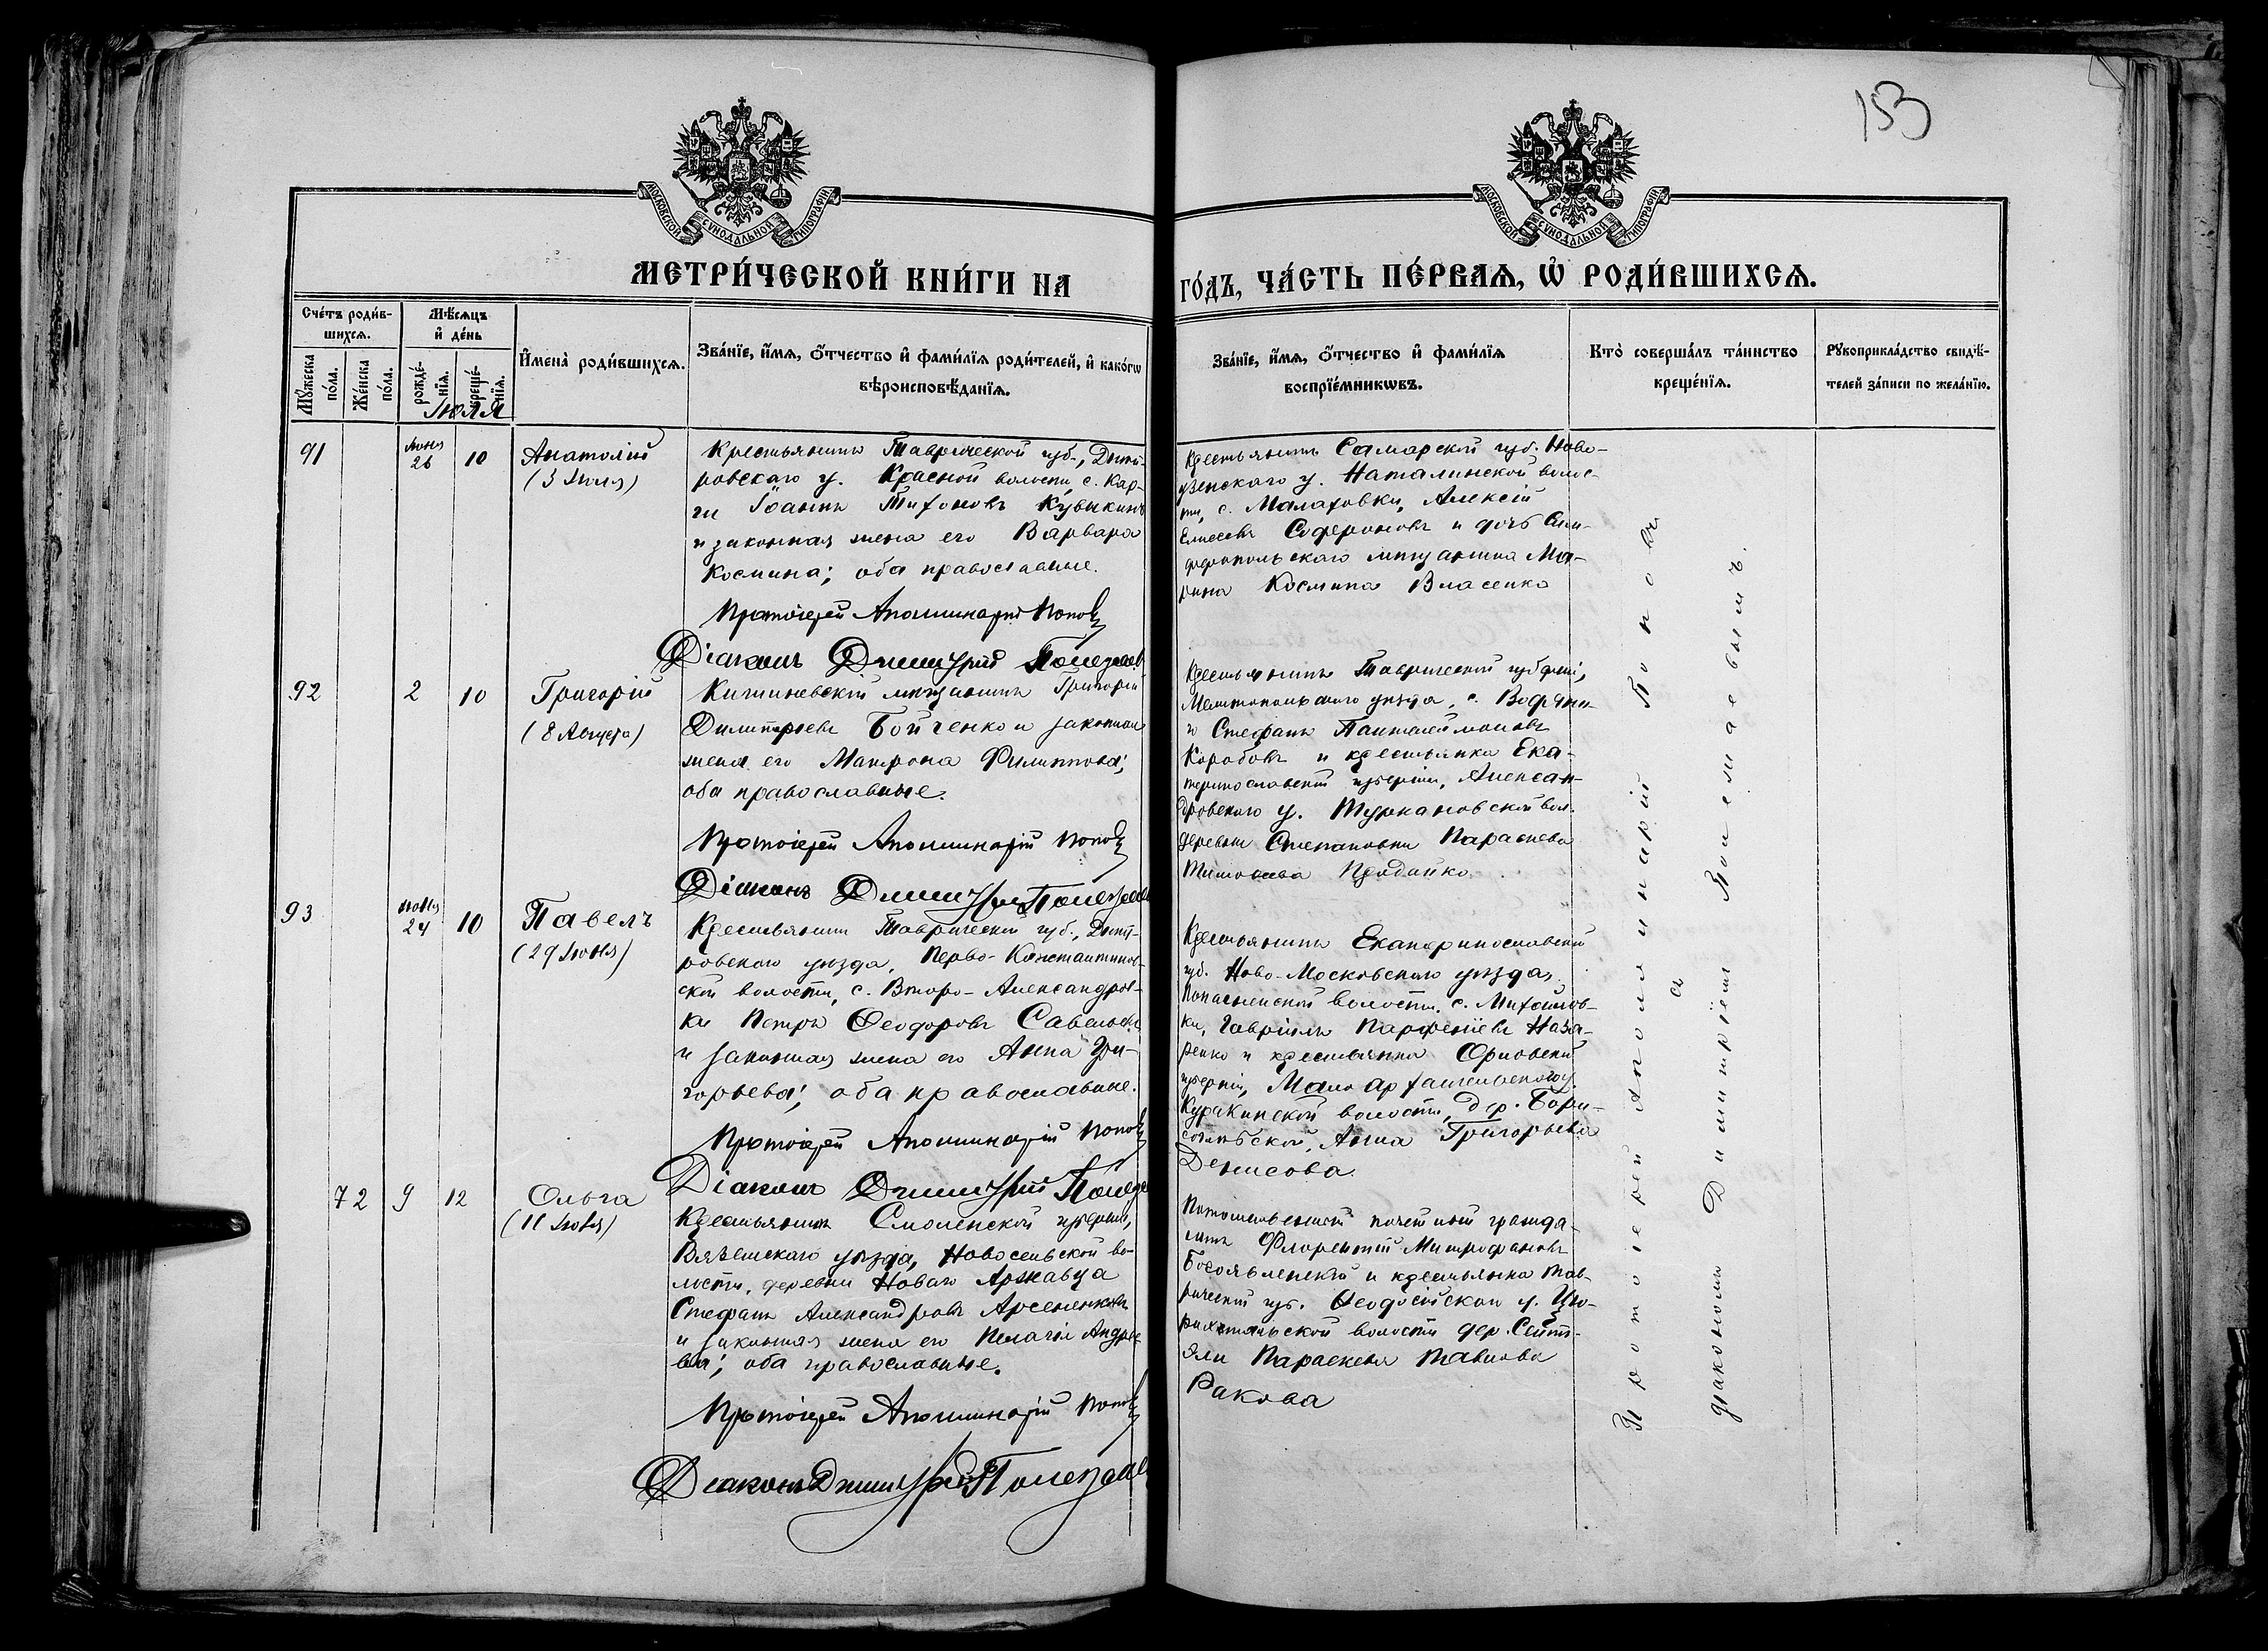 153
МОСКОВСКОЙ СѴНОДАЛЬНОЙ ТИПОГРАФІИ
МОСКОВСКОЙ СѴНОДАЛЬНОЙ ТИПОГРАФІИ
МЕТРИ́ЧЕСКОЙ КНИ́ГИ НА
ГО́ДЪ, ЧА́СТЬ ПЕ́РВАЯ, Ѡ҆ РОДИ́ВШИХСЯ.
Сче́тъ роди́в-
шихся.
Мꙋ́жеска
по́ла.
Же́нска
по́ла.
Мѣ́сяцъ
и҆ де́нь
рожде́-
нїя.
креще́-
нїя.
Июля
И҆мена̀ роди́вшихся.
Зва́нїе, и҆́мя, ѻ҆́тчество и҆ фами́лїя роди́телей, и҆ како́гѡ
вѣроисповѣ́данїя.
Зва́нїе, и҆́мя, ѻ҆́тчество и҆ фами́лїя
воспрїе́мникѡвъ.
Кто̀ соверша́лъ та́инство
креще́нїя.
Рꙋкоприкла́дство свидѣ́-
телей за́писи по жела́нїю.
91
Июня
26
10
Анатолій
(3 Июля)
Крестьянинъ Таврической губ., Днѣп-
ровскаго у. Красной волости, с. Кар-
ги Іоаннъ Тихоновъ Кувыкинъ
и законная жена его Варвара
Космина; оба православные.
Протоіерей Аполлинарій Поповъ
Діаконъ Димитрій
Крестьянинъ Самарской губ. Ново-
узенскаго у. Наталинской волос-
ти, с. Малаховки, Алексій
Елисеевъ Софроновъ и дочь Сим-
феропольскаго мѣщанина Ма-
рина Космина Власенко
92
2
10
Григорій
(8 Августа)
Кишиневскій мѣщанинъ Григорій
Димитріевъ Бойченко и законная
жена его Матрона Филиппова;
оба православные.
Протоіерей Аполлинарій Поповъ
Діаконъ Димитрій
Крестьянинъ Таврической губерніи,
Мелитопольскаго уѣзда, с.
Стефанъ Пантелеймоновъ
Коробовъ и крестьянка Ека-
теринославской губерніи, Алексан-
дровскаго у. Туркановской вол.
деревни Степановки Параскева
Тимофеева
93
Июня
24
10
Павелъ
(29 Июня)
Крестьянинъ Таврической губ., Днѣп-
ровскаго уѣзда, Перво-Константинов-
ской волости, с. Второ-Александров-
ки Петръ Ѳеодоровъ Савельевъ
и законная жена его Анна Гри-
горьева; оба православные.
Протоіерей Аполлинарій Поповъ
Діаконъ Димитрій
Крестьянинъ Екатеринославской
губ. Ново-Московскаго уѣзда,
волости, с. Михайлов-
ки, Гавріилъ Парфеніевъ Наза-
ренко и крестьянка Орловской
губерніи, Мало Архангельскаго у.
Куракинской волости, дер. Бори-
соглѣбской, Анна Григорьева
Денисова
72
9
12
Ольга
(11 Июля)
Крестьянинъ Смоленской губерніи,
Вяземскаго уѣзда, Новосельской во-
лости, деревни Новаго Аржавца
Стефанъ Александровъ Арсененковъ
и законная жена его Пелагія Андре-
ева; оба православные.
Протоіерей Аполлинарій Поповъ
Діаконъ Димитрій
Потомственный почетный гражда-
нинъ Флорентій Митрофановъ
Богоявленскій и крестьянка Тав-
рической губ. Ѳеодосійскаго у. Цю-
рихтальской волости дер. Сейт-
Эли Параскева Павлова
Ракова
Протоіерей Аполлинарій Поповъ
съ
діакономъ Димитріемъ